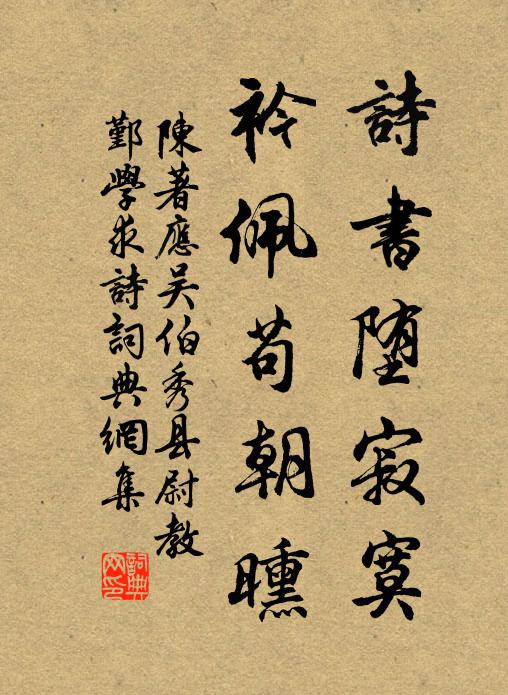 詩書堕寂寞
衿佩苟朝曛
陳著應吴伯秀县尉教
鄞學求詩詞典網集
詞典网印